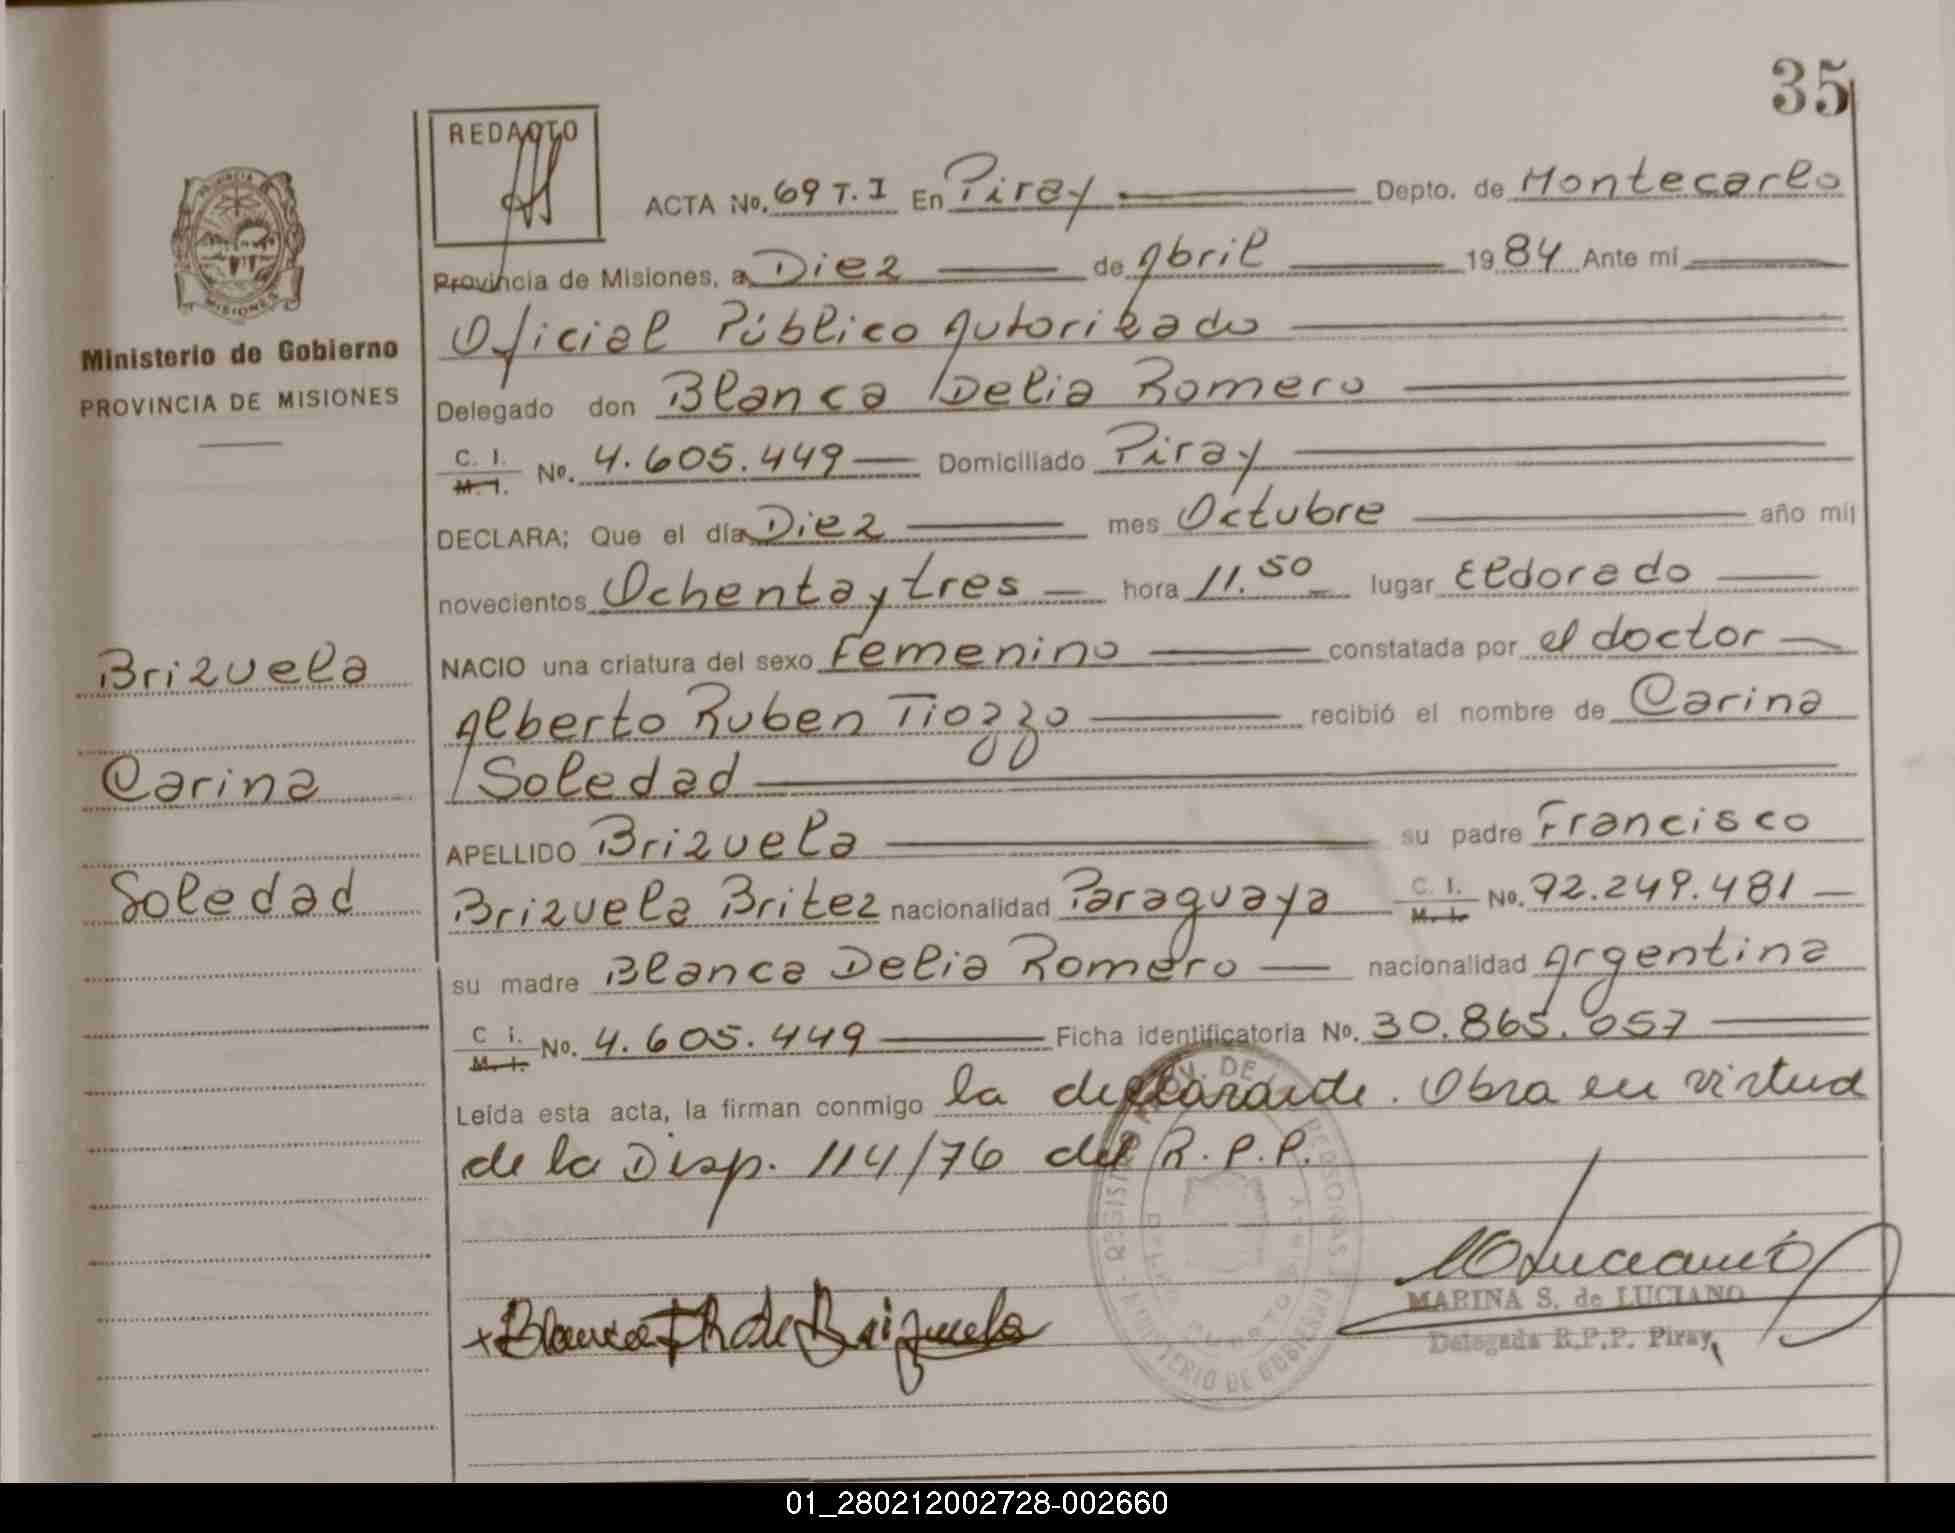 35
REDACTO
ACTA No. 69 T. I En Piray Depto. de Montecarlo
Provincia de Misiones, a Diez de Abril 1984 Ante mí
Oficial Público Autorizado
Delegado don Blanca Delia Romero
C. I. M. I. No. 4.605.449 Domiciliado Piray
DECLARA; Que el día Diez mes Octubre año mil
novecientos Ochenta y tres hora 11.50 lugar Eldorado
NACIO una criatura del sexo Femenino constatada por el doctor
Alberto Ruben Tiozzo recibió el nombre de Carina
Soledad
APELLIDO Brizuela su padre Francisco
Brizuela Britez nacionalidad Paraguaya C. I. M. I. No. 92.249.481
su madre Blanca Delia Romero nacionalidad Argentina
C i. M. I. No. 4.605.449 Ficha identificatoria No. 30.865.057
Leída esta acta, la firman conmigo la declarante. Obra en virtud
de la Disp. 114/76 del R. P. P.
PROVINCIA
MISIONES
Ministerio de Gobierno
PROVINCIA DE MISIONES
Brizuela
Carina
Soledad
Blanca R de Brizuela
Luciano
MARINA S. de LUCIANO
Delegada R.P.P. Piray
MINISTERIO DE GOBIERNO
01_280212002728-002660